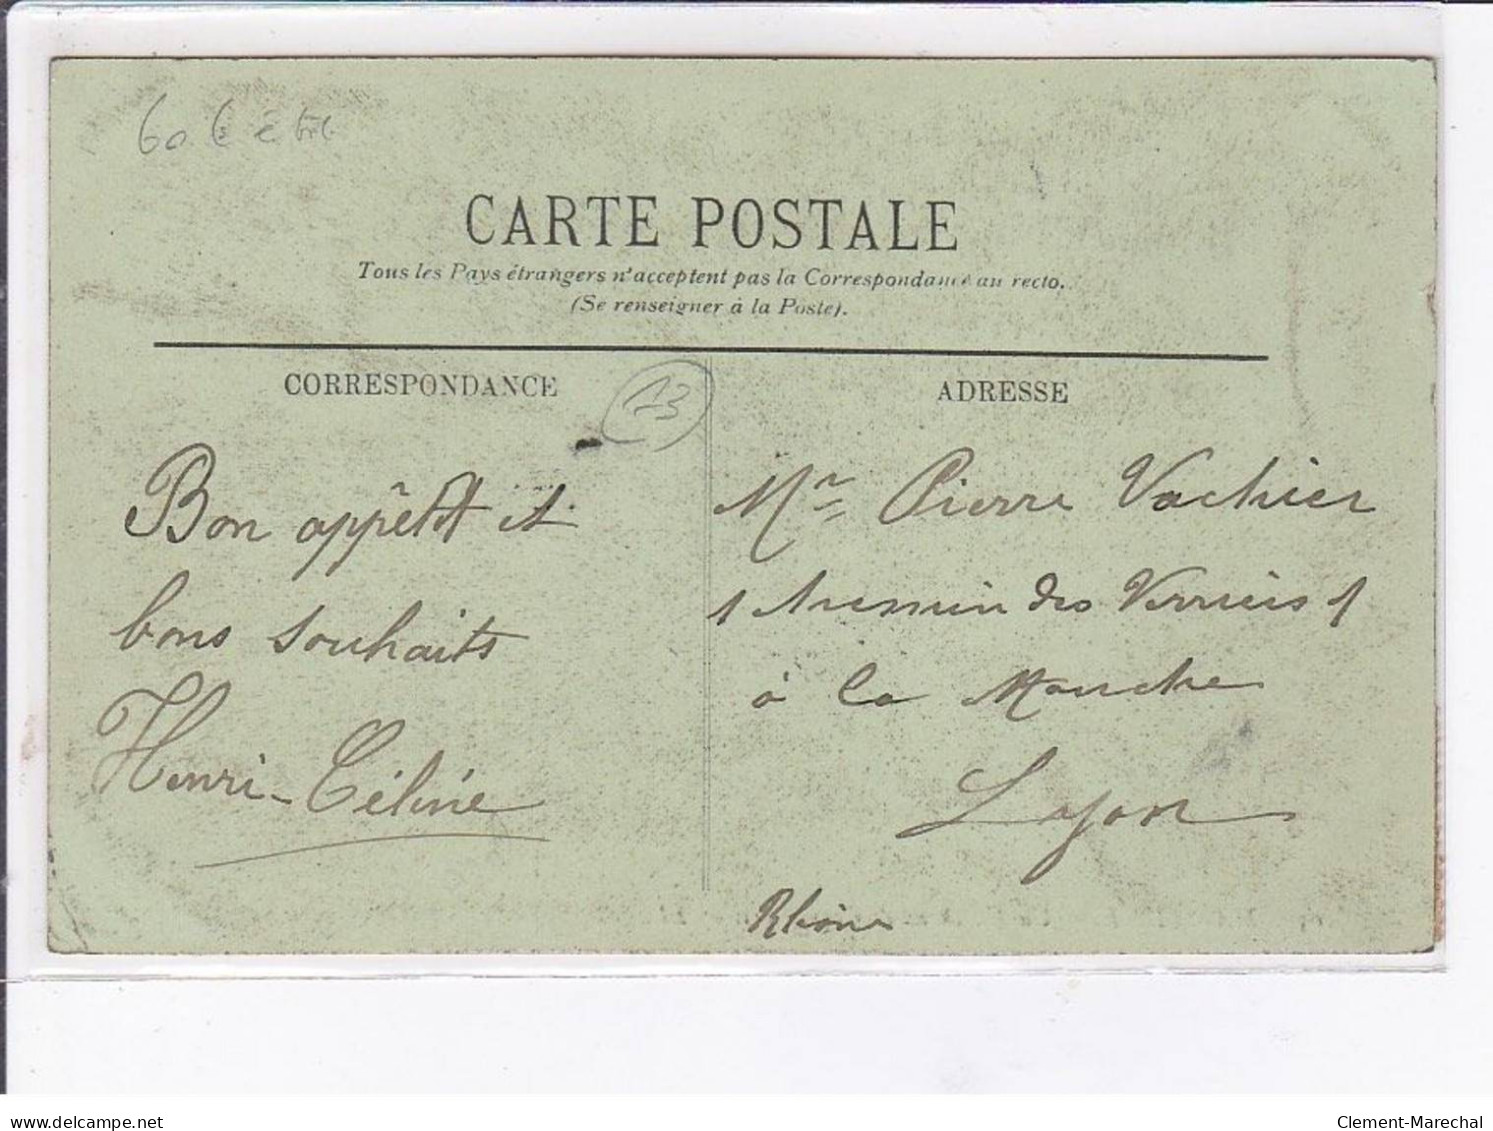 60 €
CARTE POSTALE
Tous les Pays étrangers n'acceptent pas la Correspondance au recto.
(Se renseigner à la Poste).
CORRESPONDANCE
13
Bon appêtit et
bons souhaits
Henri-Céline
ADRESSE
Mr Pierre Vachier
1 des 1
à la Mouche
Lyon
Rhône
www.delcampe.net
Clement-Marechal